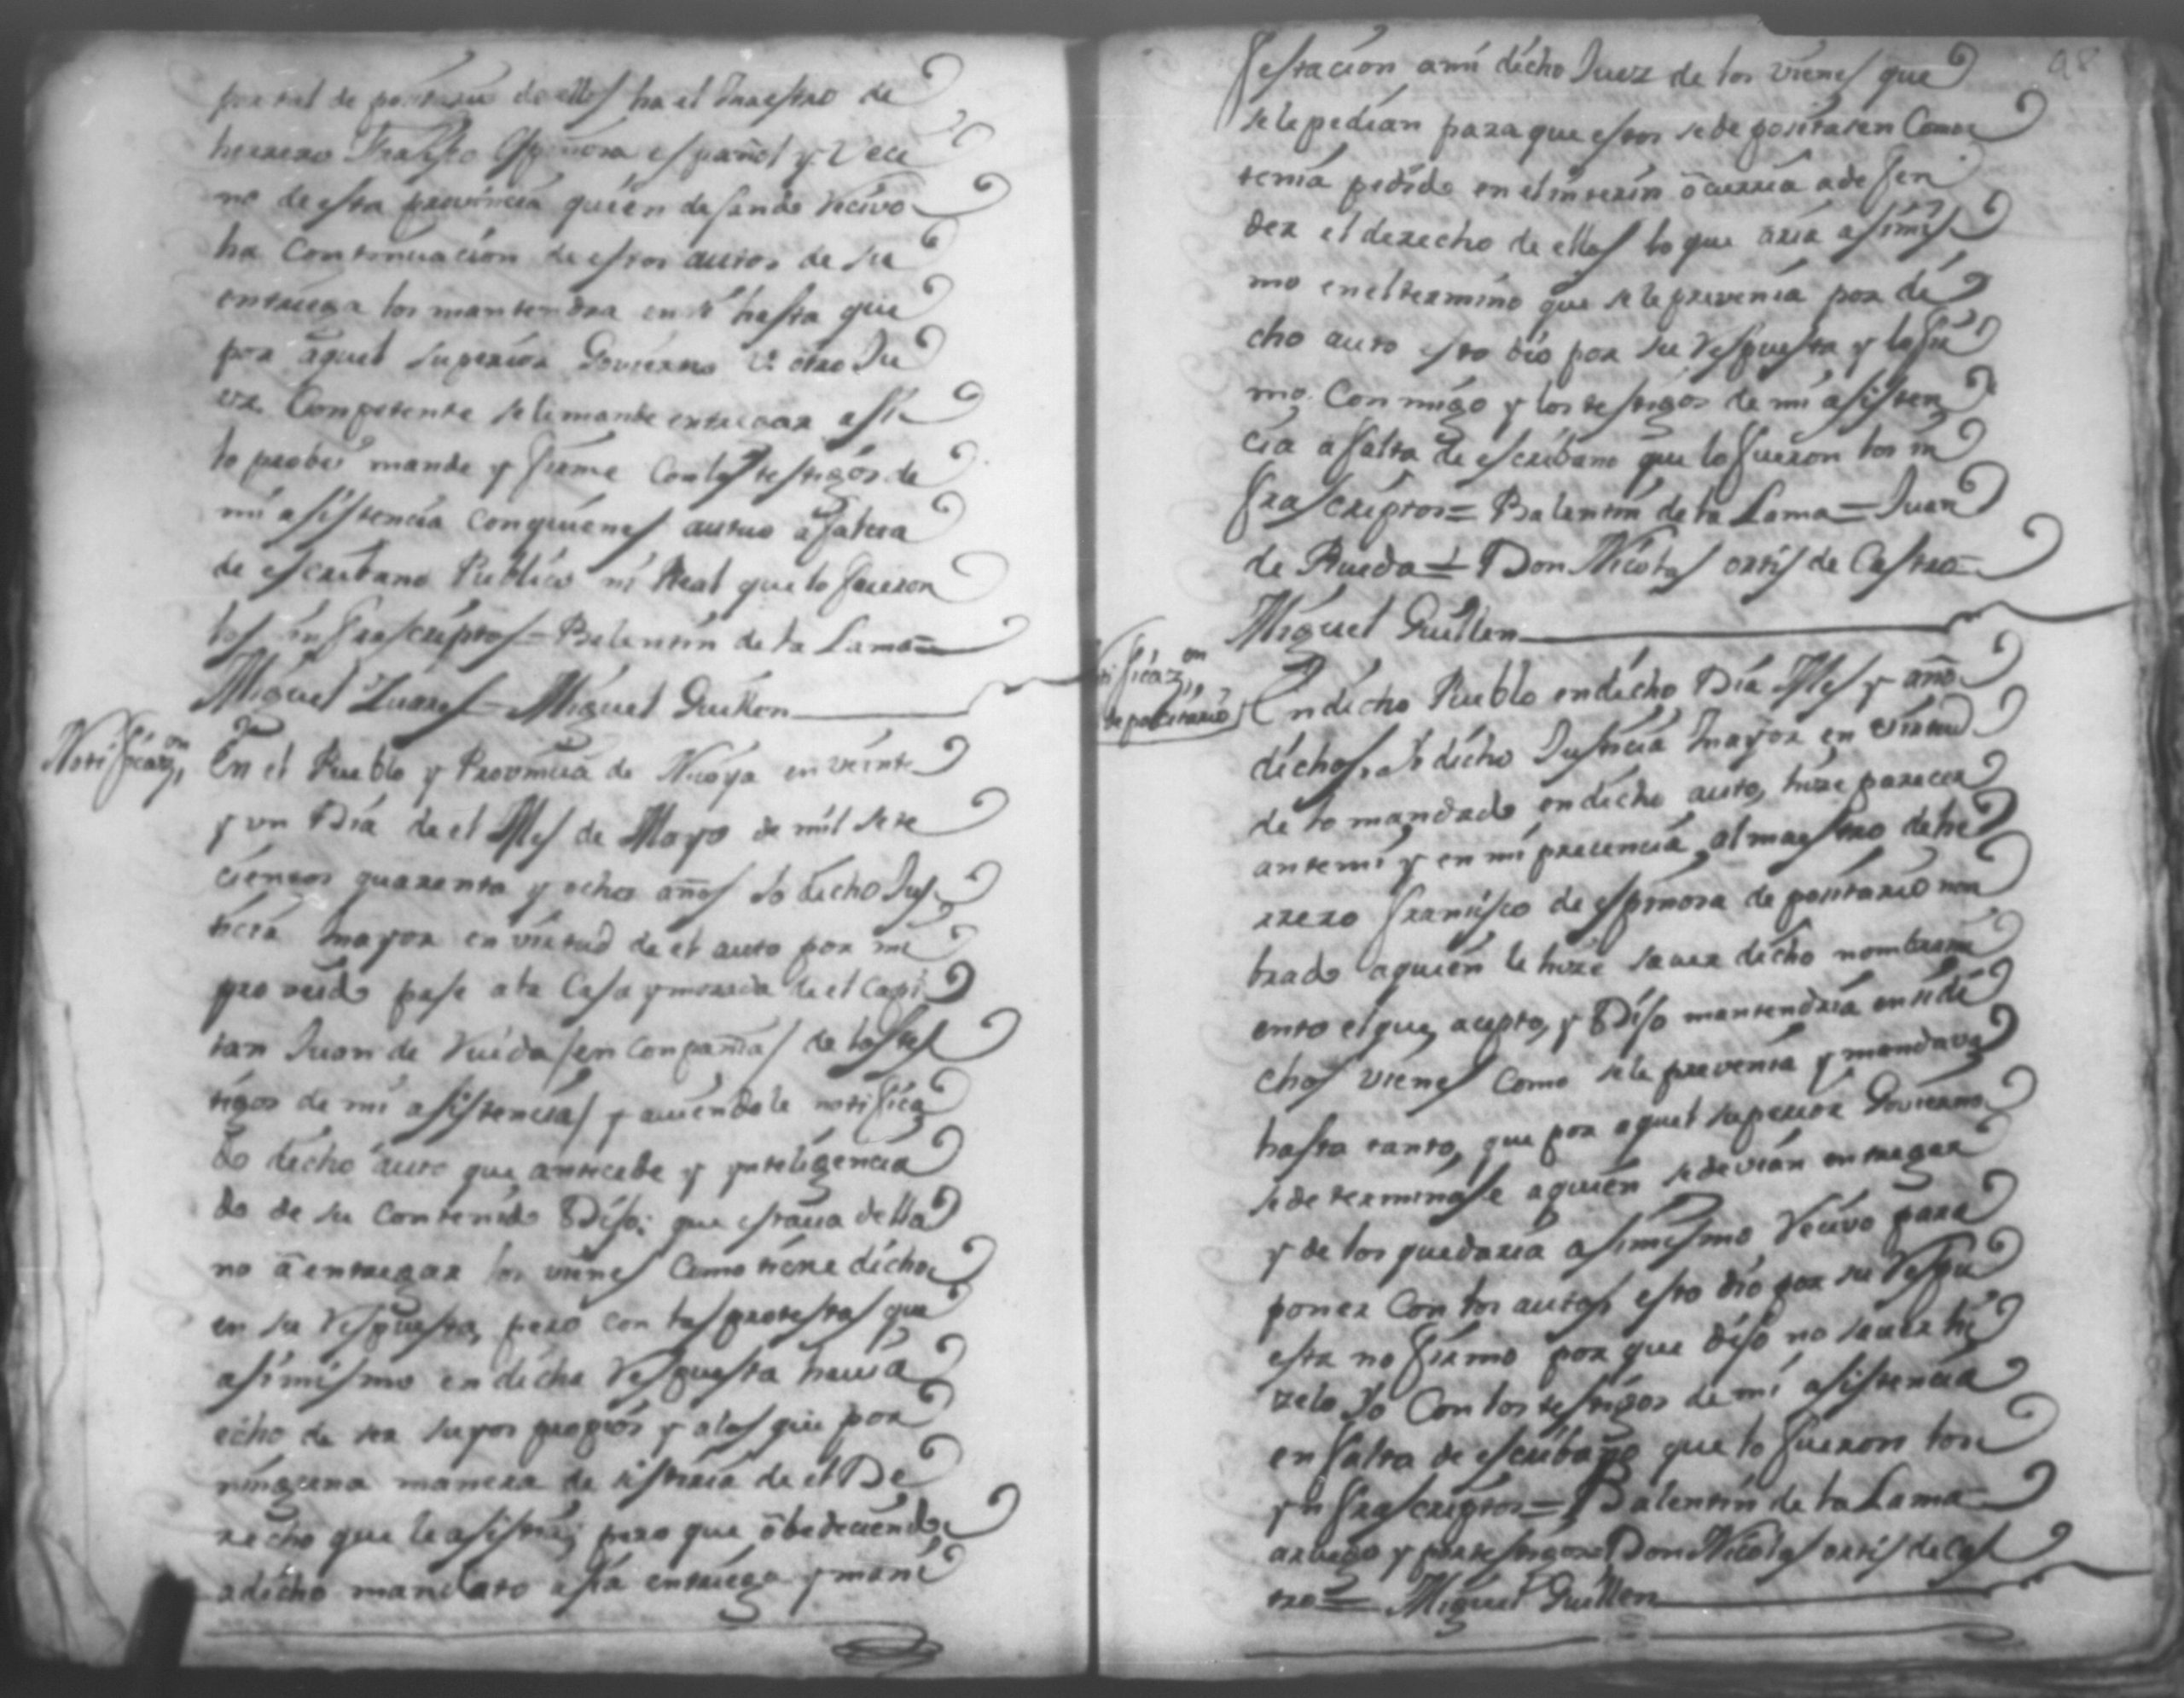 por tal de pocitario de ellos ha el Maestro de
herrero Franᶜᵒ Espinosa español y Veci
no de esta provincia quien dejando Recivo
ha Continuacion de estos autos de su
entrega los mantendra en si hasta que
por aquel Superior Govierno u otro Ju
ez Competente se le mande entregar assi
lo probei mande y firme con los testigos de
mi asistencia con quienes autuo a falta
de escribano Publico ni Real que lo fueron
los infrascriptos = Balentin de la Lama =
Miguel Zuares = Miguel Guillen
Notificazⁿ
En el Pueblo y Provincia de Nicoya en veinte
y un Dia de el Mes de Mayo de mil sete
cientos quarenta y ocho años Yo dicho Jus
ticia mayor en virtud de el auto por mi
proveido pase a la Casa y morada de el Capi
tan Juan de Rueda / en compañia / de los tes
tigos de mi asistencia / y aviendole notifica
do dicho auto que antecede y ynteligencia
do de su Contenido Dijo: que estava de lla
no a entregar los vienes Como tiene dicho
en su Respuesta, pero con las protestas que
asimismo en dicha Respuesta havia
echo de ser suyos propios y a los que por
ninguna manera de sistiria de el De
recho que le asistia; pero que obedeciendo
a dicho mandato asia entrega y mani
98
festacion a mi dicho Juez de los vienes que
se le pedian para que estos se de positasen Como
tenia pedido en el interin ocurria a defen
der el derecho de ellos lo que aria asimis
mo en el termino que se le prevenia por di
cho auto esto dio por su Respuesta y lo fir
mo Con migo y los testigos de mi asisten
cia a falta de escribano que lo fueron los in
frascriptos = Balentin de la Lama = Juan
de Rueda = Don Nicolas ortis de Castro =
Miguel Guillen
tificazᵒⁿ
depocitario
En dicho Pueblo en dicho Dia Mes y año
dichos Yo dicho Justicia Mayor en virtud
de lo mandado en dicho auto, hize parecer
ante mi y en mi precencia al maestro de he
rrero francisco de espinosa de positario nom
brado a quien le hize saver dicho nombrami
ento el que acepto, y Dijo mantendria en si di
chos vienes Como se le prevenia y mandava
hasta tanto, que por aquel superior Govierno
se determinase a quien se devian entregar
y de los quedaria asimismo Recivo para
poner Con los autos esto dio por su Respu
esta no firmo por que dijo no saver hi
zelo Yo Con los testigos de mi asistencia
en falta de escribano que lo fueron los
ynfrascriptos = Balentin de la Lama =
a ruego y por testigo = Don Nicolas ortis de Cas
tro = Miguel Guillen